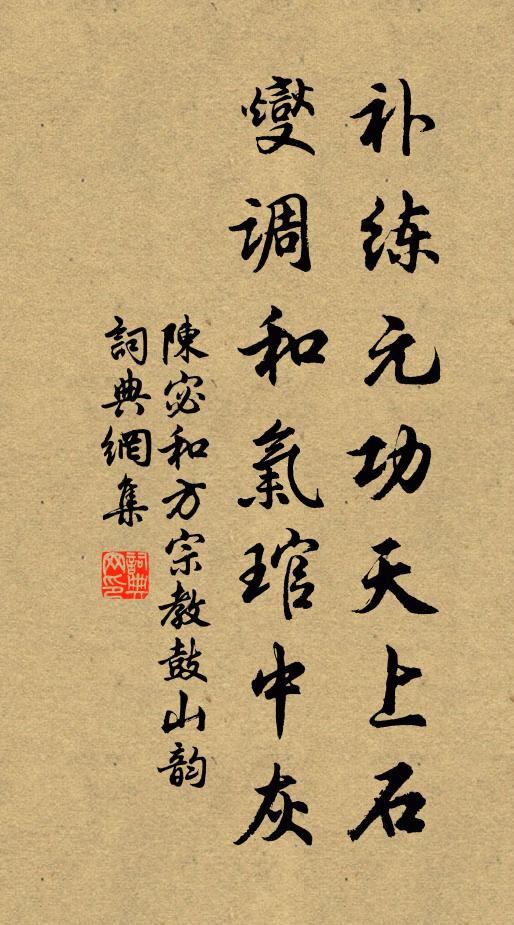 补练元功天上石
燮调和氣琯中灰
陳宓和方宗教鼓山韵
詞典網集
詞典网印